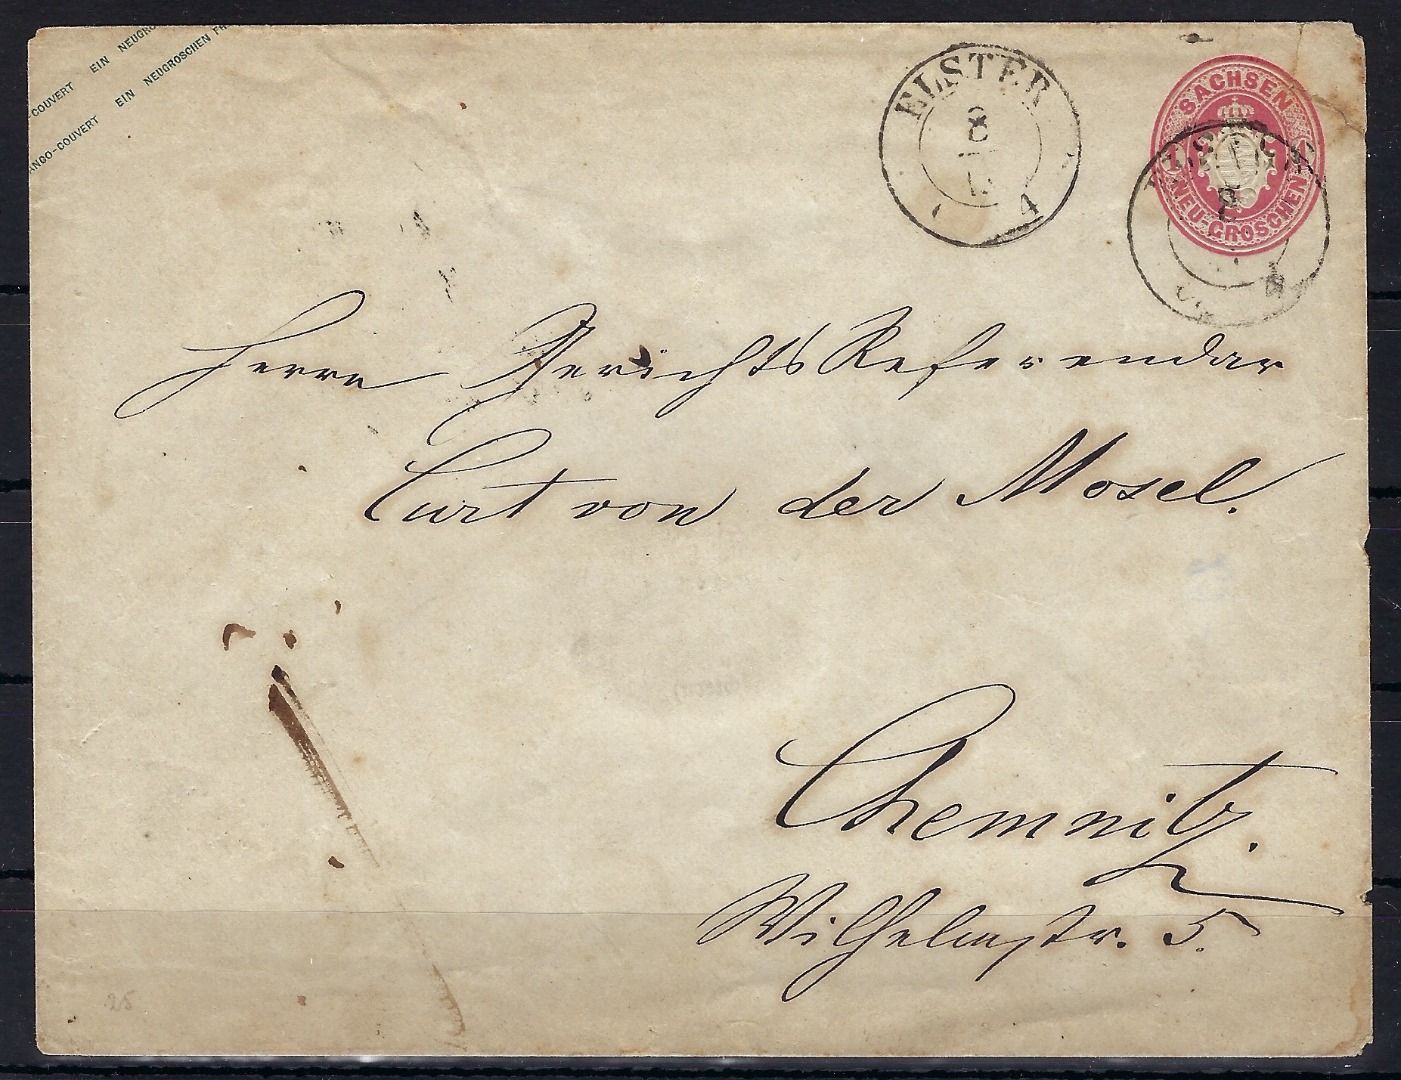 -COUVERT EIN NEUGRO
ANCO-COUVERT EIN NEUGROSCHEN FR
ELSTER
8
4
SACHSEN
1 1
NEU-GROSCHEN
Herrn Gerichts Referendar
Curt von der Mosel.
Chemnitz.
Wilhelmstr. 5.
25